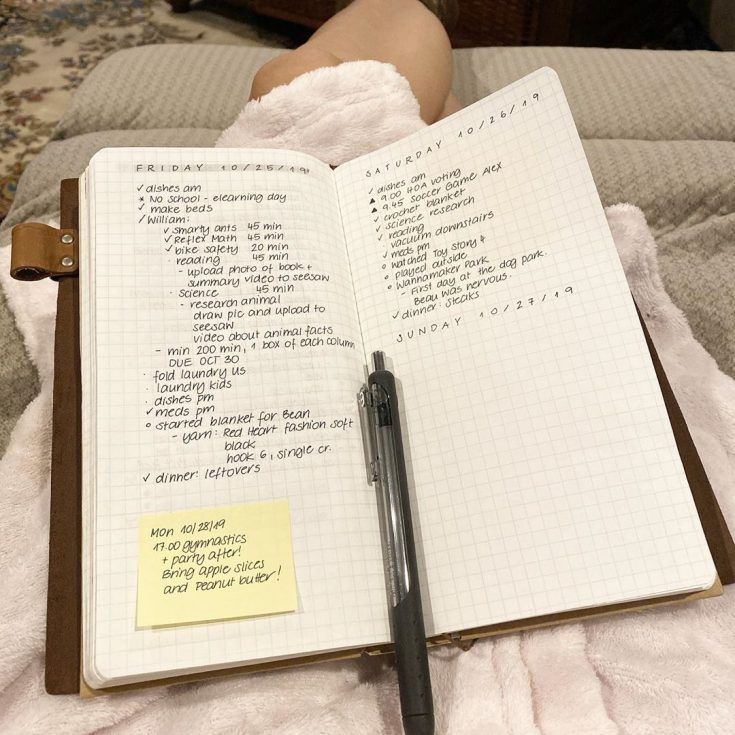 FRIDAY 10/25/19
✓ dishes am
* No school - elearning day
✓ make beds
/ William:
✓ smarty ants 45 min
✓ Reflex Math 45 min
✓ bike safety 20 min
· reading 45 min
- upload photo of book +
summary video to seesaw
· science 45 min
- research animal
draw pic and upload to
seesaw
video about animal facts
- min 200 min, 1 box of each column
DUE OCT 30
· fold laundry us
· laundry kids
· dishes pm
✓ meds pm
o started blanket for Bean
- yarn: Red Heart fashion soft
black
hook 6, single cr.
✓ dinner: leftovers
Mon 10/28/19
17.00 gymnastics
+ party after!
Bring apple slices
and Peanut butter!
SATURDAY 10/26/19
✓ dishes am
▲ 9.00 HOA voting
▲ 9.45 Soccer Game Alex
✓ crochet blanket
✓ science research
✓ reading
vacuum downstairs
✓ meds pm
o watched Toy Story 4
o played outside
o Wannamaker Park
- First day at the dog park.
Beau was nervous.
✓ dinner: steaks
SUNDAY 10/27/19